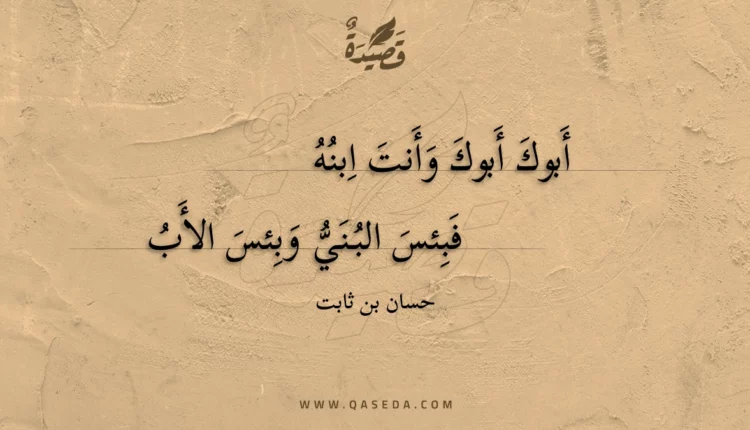 قَصِيدَةٌ
أَبوكَ أَبوكَ وَأَنتَ اِبنُهُ
فَبِئسَ البُنَيُّ وَبِئسَ الأَبُ
حسان بن ثابت
WWW.QASEDA.COM